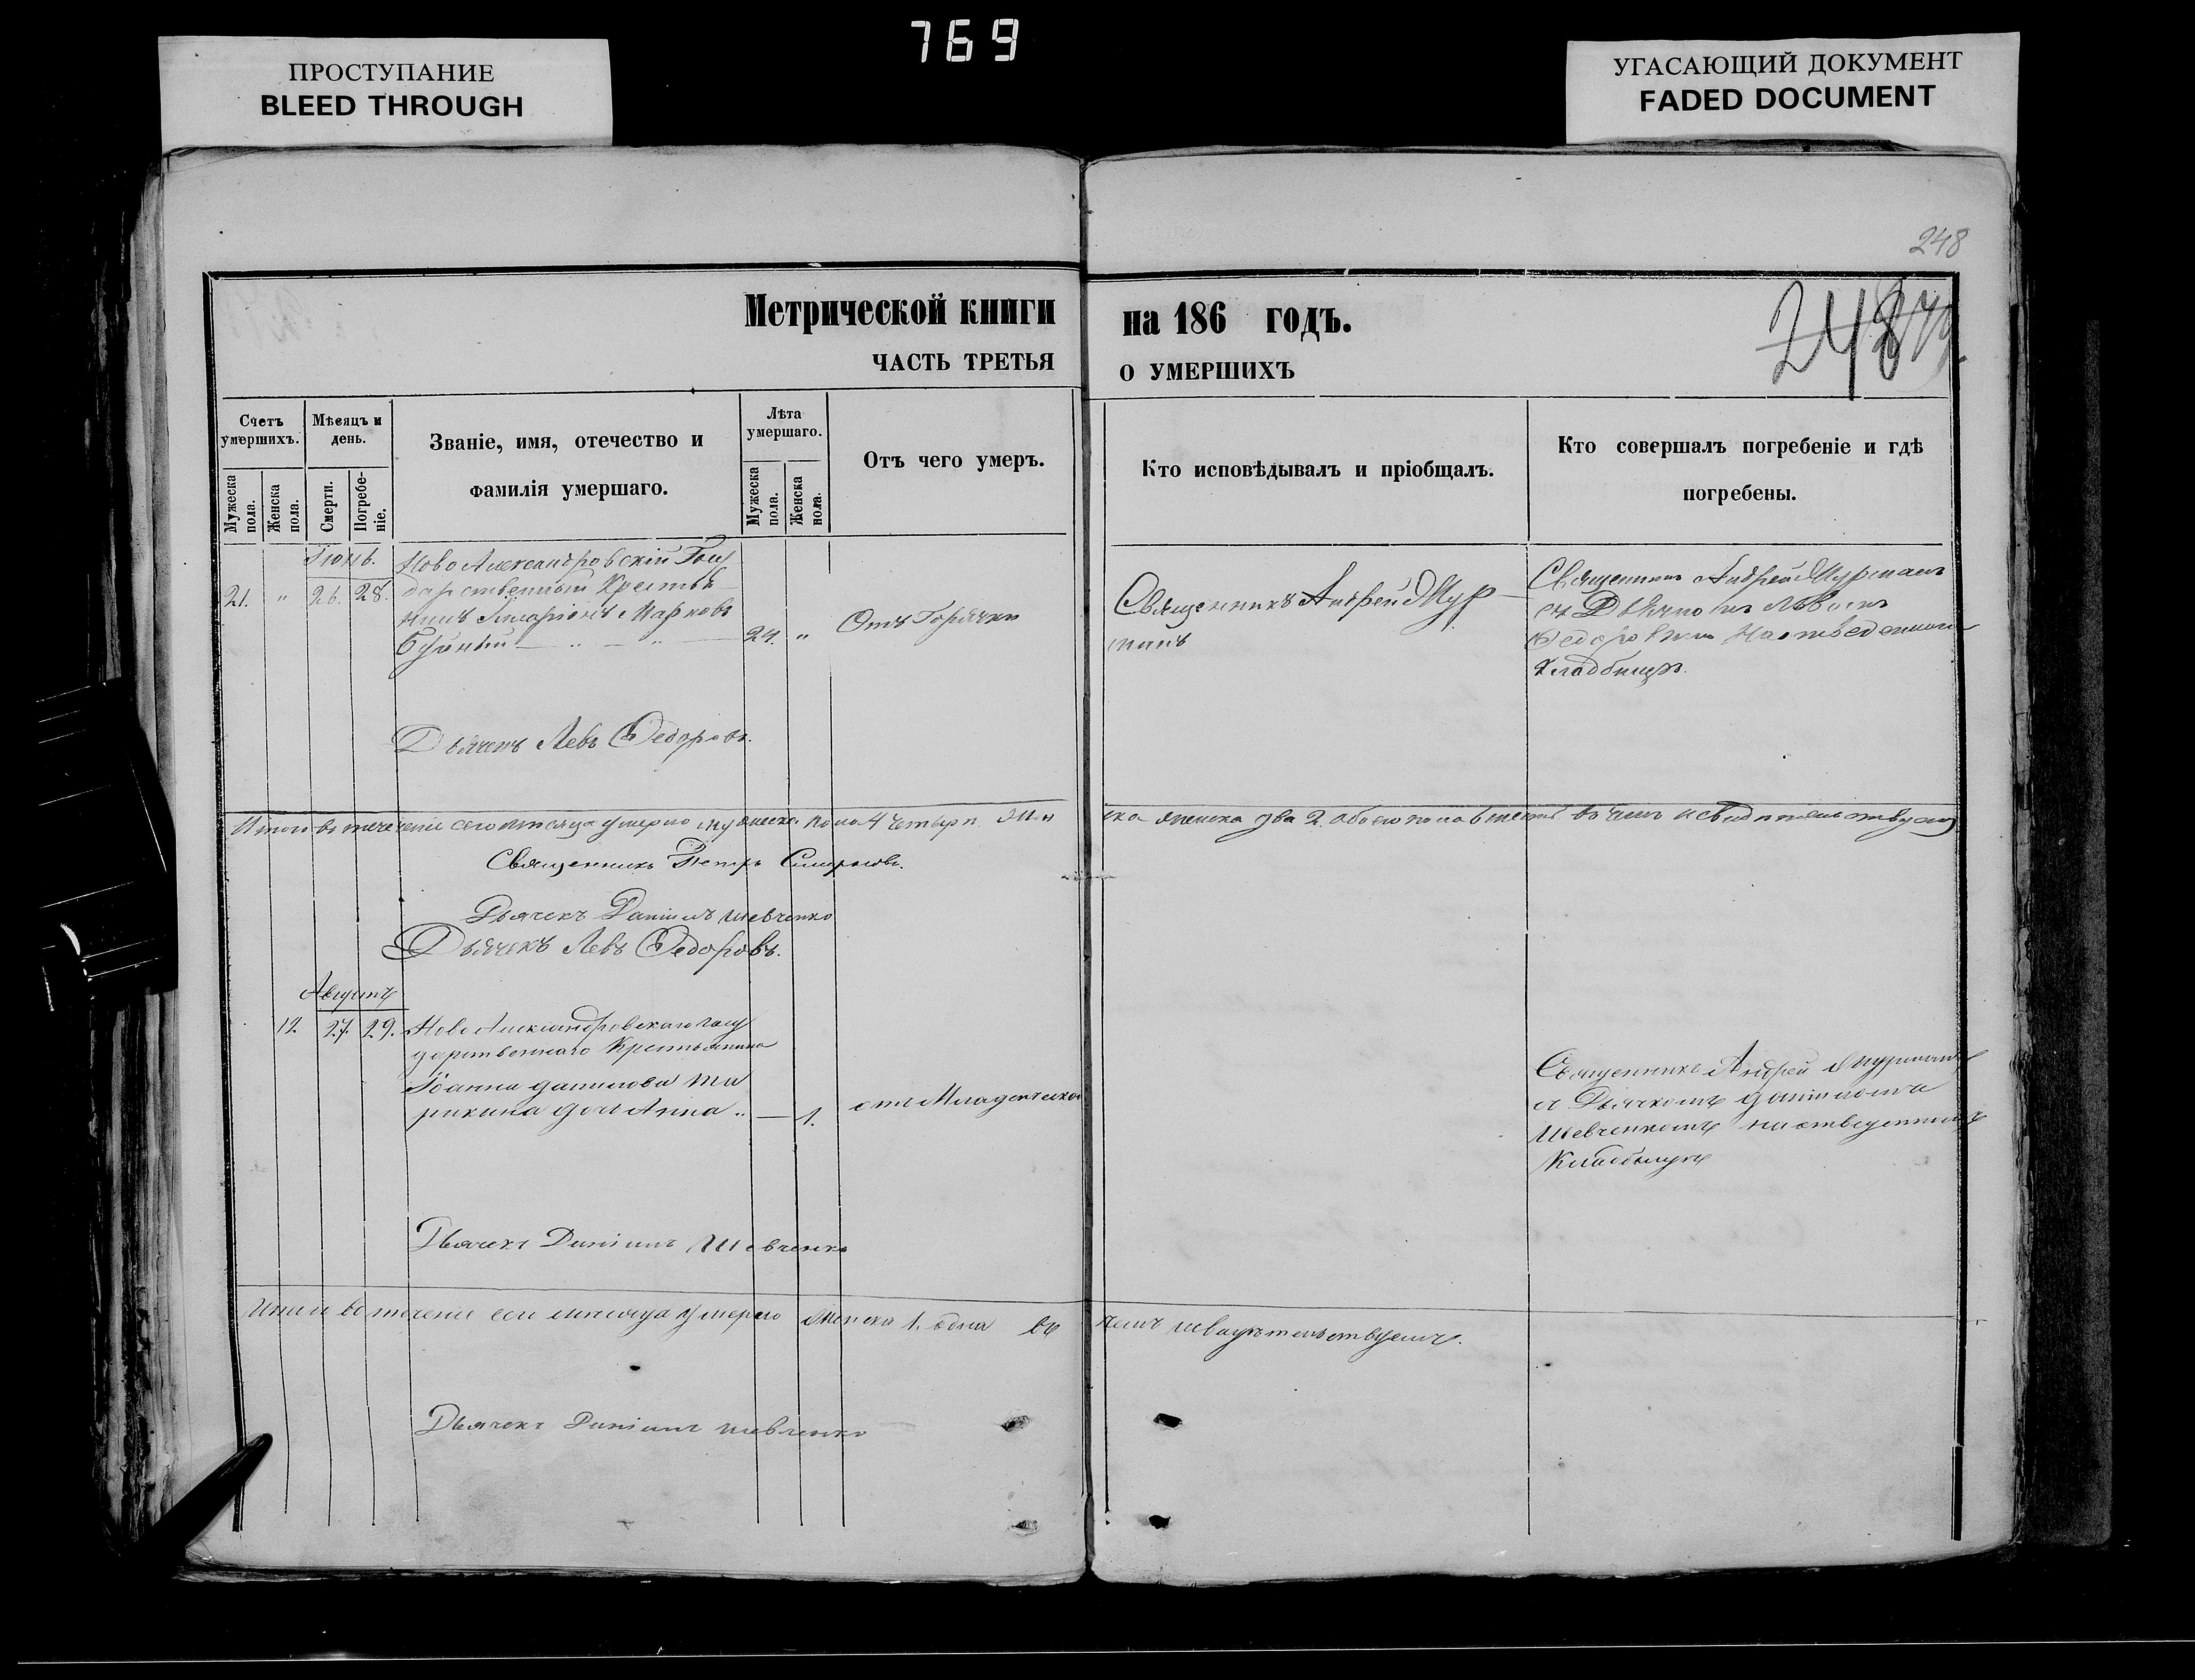 769
ПРОСТУПАНИЕ
BLEED THROUGH
УГАСАЮЩИЙ ДОКУМЕНТ
FADED DOCUMENT
248
248
Метрической книги на 186 годъ.
ЧАСТЬ ТРЕТЬЯ О УМЕРШИХЪ
Счетъ умершихъ.
Мужеска пола.
Женска пола.
Мѣсяцъ и день.
Смерти.
Погребеніе.
Званіе, имя, отечество и
фамилія умершаго.
Лѣта умершаго.
Мужеска пола.
Женска пола.
Отъ чего умеръ.
Кто исповѣдывалъ и пріобщалъ.
Кто совершалъ погребеніе и гдѣ
погребены.
Іюнь.
21. " 26. 28.
НовоАлександровскій Госу
дарственный Крестья
нинъ Иларіонъ Марковъ
24. "
Отъ Горячки
Священникъ Андрей Мур
манъ
Священникъ Андрей Мурманъ
съ Дьячкомъ Львомъ
Федоровымъ На отведенномъ
Кладбищѣ.
Дьячекъ Левъ Федоровъ.
Итого въ теченіе сего мѣсяца умерло мужеска пола 4 четыри жен
ска два 2. обоего пола в чемъ и свидѣтельствуемъ
Священникъ Петръ Смирновъ.
Дьячекъ Даніилъ Шевченко
Дьячекъ Левъ Федоровъ.
Августъ
12 27. 29.
Ново Александровскаго госу
дарственнаго Крестьянина
Іоанна Данилова
дочь Анна " — 1.
отъ Младенческой
Священникъ Андрей Мурманъ
съ Дьячкомъ Даніиломъ
Шевченкомъ на отведенномъ
Кладбищѣ
Дьячекъ Даніилъ Шевченко
Итого въ теченіе сего мѣсяца умерло женска 1. одна въ
чемъ и свидѣтельствуемъ.
Дьячекъ Даніилъ Шевченко